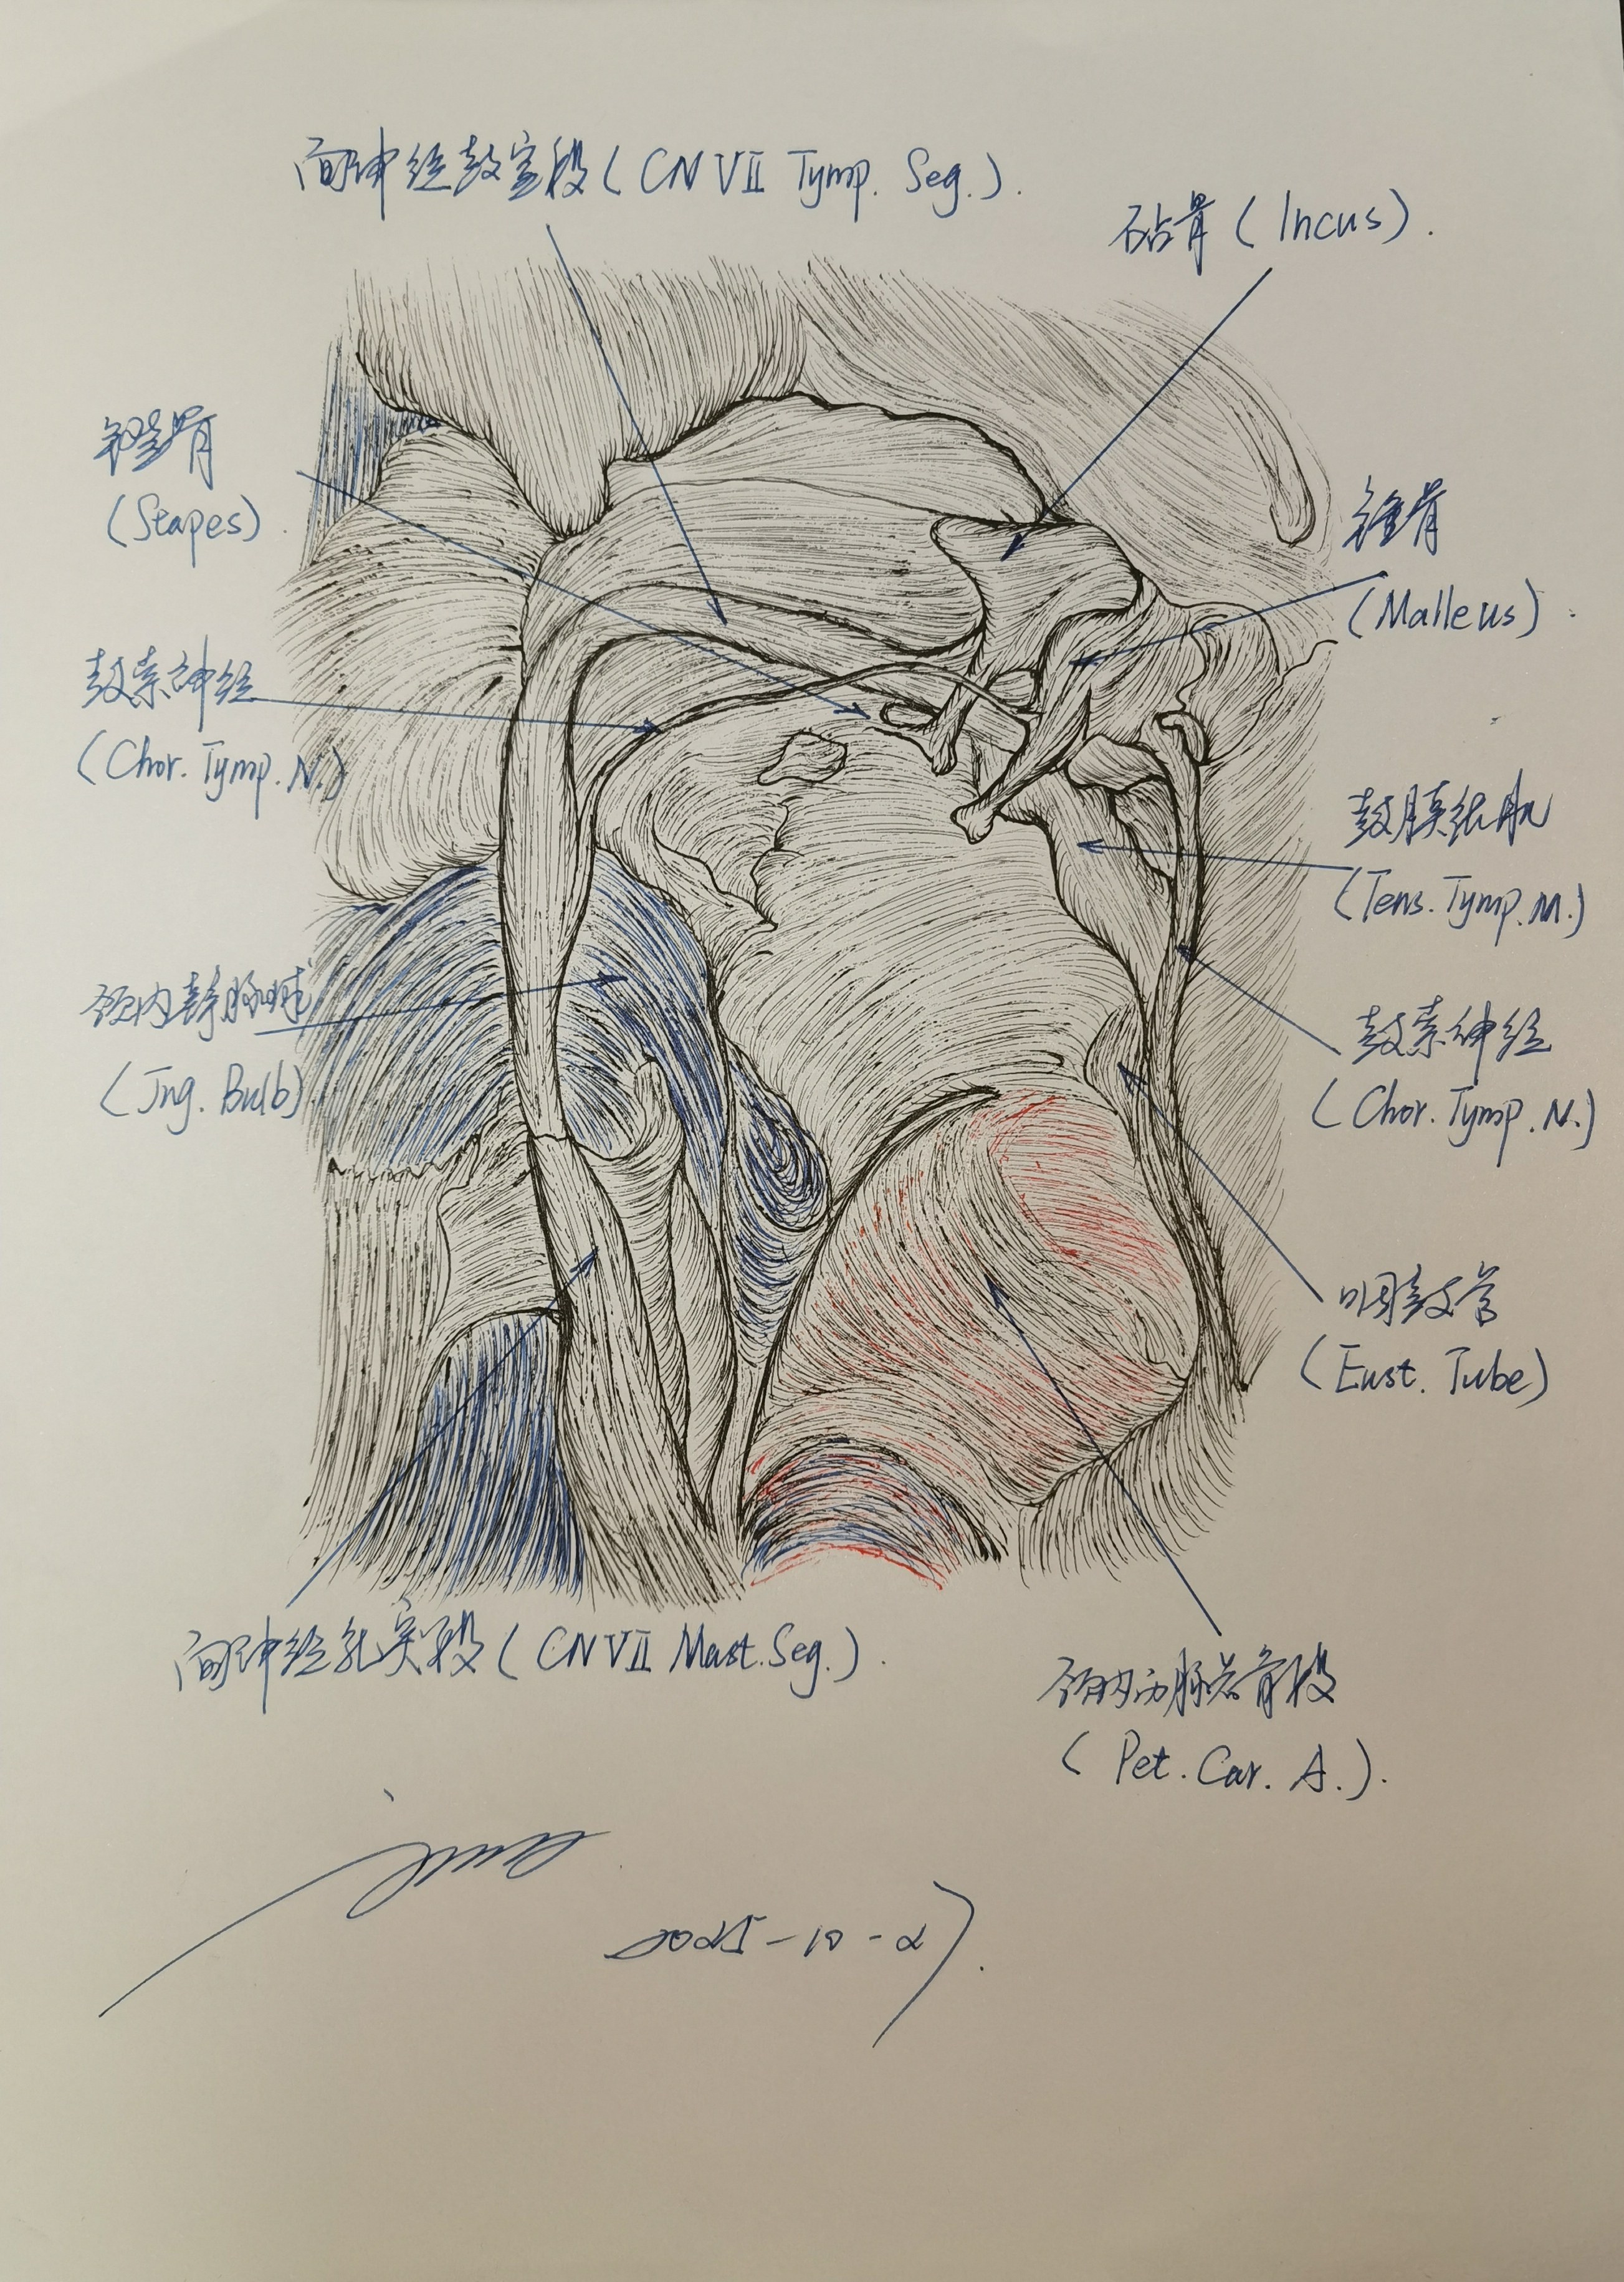 面神经鼓室段(CN VII Tymp. Seg.).
砧骨(Incus).
镫骨
(Stapes).
锤骨
(Malleus).
鼓索神经
(Chor. Tymp. N.)
鼓膜张肌
(Tens. Tymp. M.)
颈内静脉球
(Jug. Bulb)
鼓索神经
(Chor. Tymp. N.)
咽鼓管
(Eust. Tube)
面神经乳突段(CN VII Mast. Seg.).
颈内动脉岩骨段
(Pet. Car. A.).
2025-10-27.